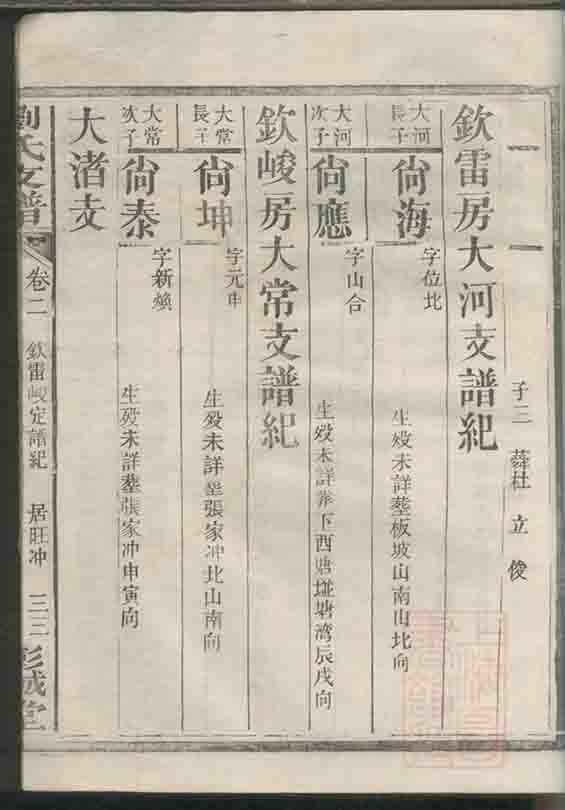 子三 蕣杜 立 俊
欽雷房大河支譜紀
大河長子 尙海 字位北 生殁未詳塟板坡山南山北向
大河次子 尙應 字山合 生殁未詳塟下西塘墶塘湾辰戌向
欽峻房大常支譜紀
大常長子 尙坤 字元申 生殁未詳塟張家冲北山南向
大常次子 尙泰 字新煥 生殁未詳塟張家冲申寅向
大渚支
劉氏支譜 卷二 欽雷峻定譜紀 居旺冲 三三 彭城堂